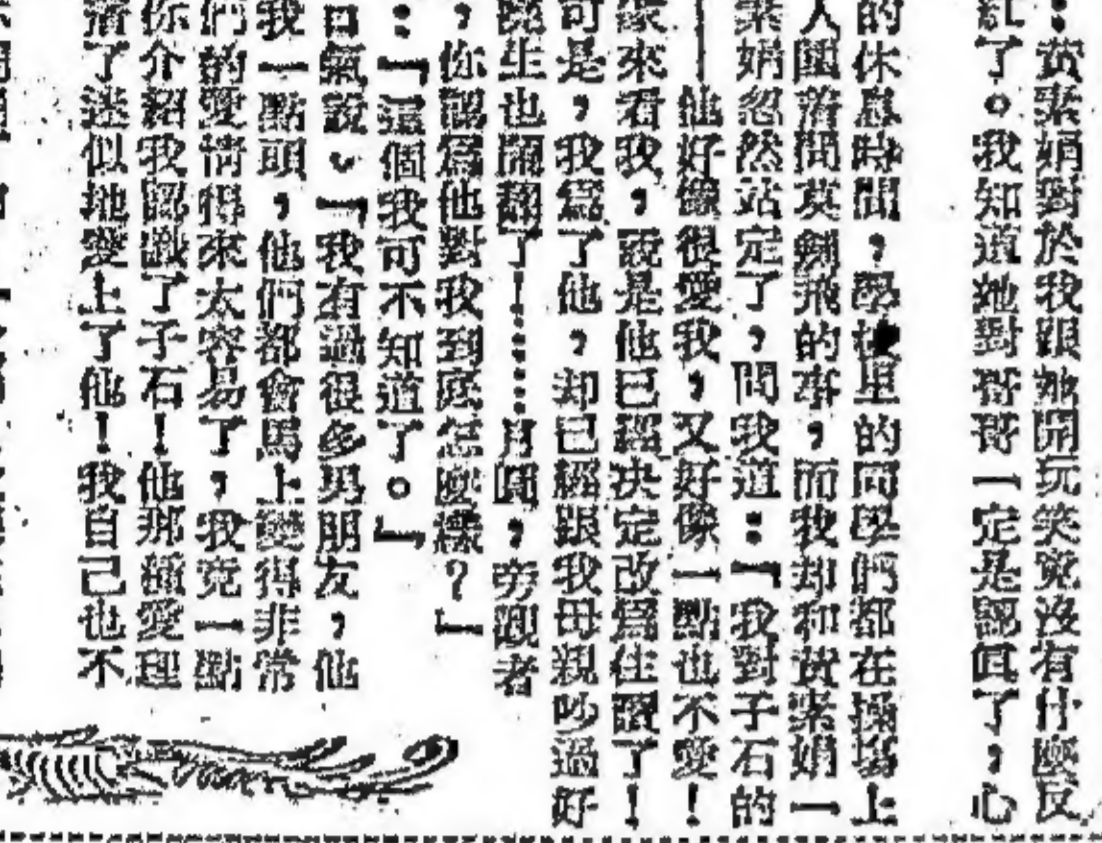 ：黃素娟對於我跟她開玩笑竟沒有什麼反
紅了。我知道她對哥哥一定是認眞了，心
的休息時間，學校里的同學們都在操場上
人圍着問莫劍飛的事，而我却和黃素娟一
素娟忽然站定了，問我道：『我對子石的
——他好像很愛我，又好像一點也不愛！
家來看我，說是他已經决定改爲住讀了！
可是，我爲了他，却已經跟我母親吵過好
生也鬧翻了！……月圓，旁觀者
，你認爲他對我到底怎麼樣？』
：『這個我可不知道了。』
口氣說。『我有過很多男朋友，他
我一點頭，他們都會馬上變得非常
們的愛情得來太容易了，我竟一點
你介紹我認識了子石！他那種愛理
着了迷似地愛上了他！我自己也不